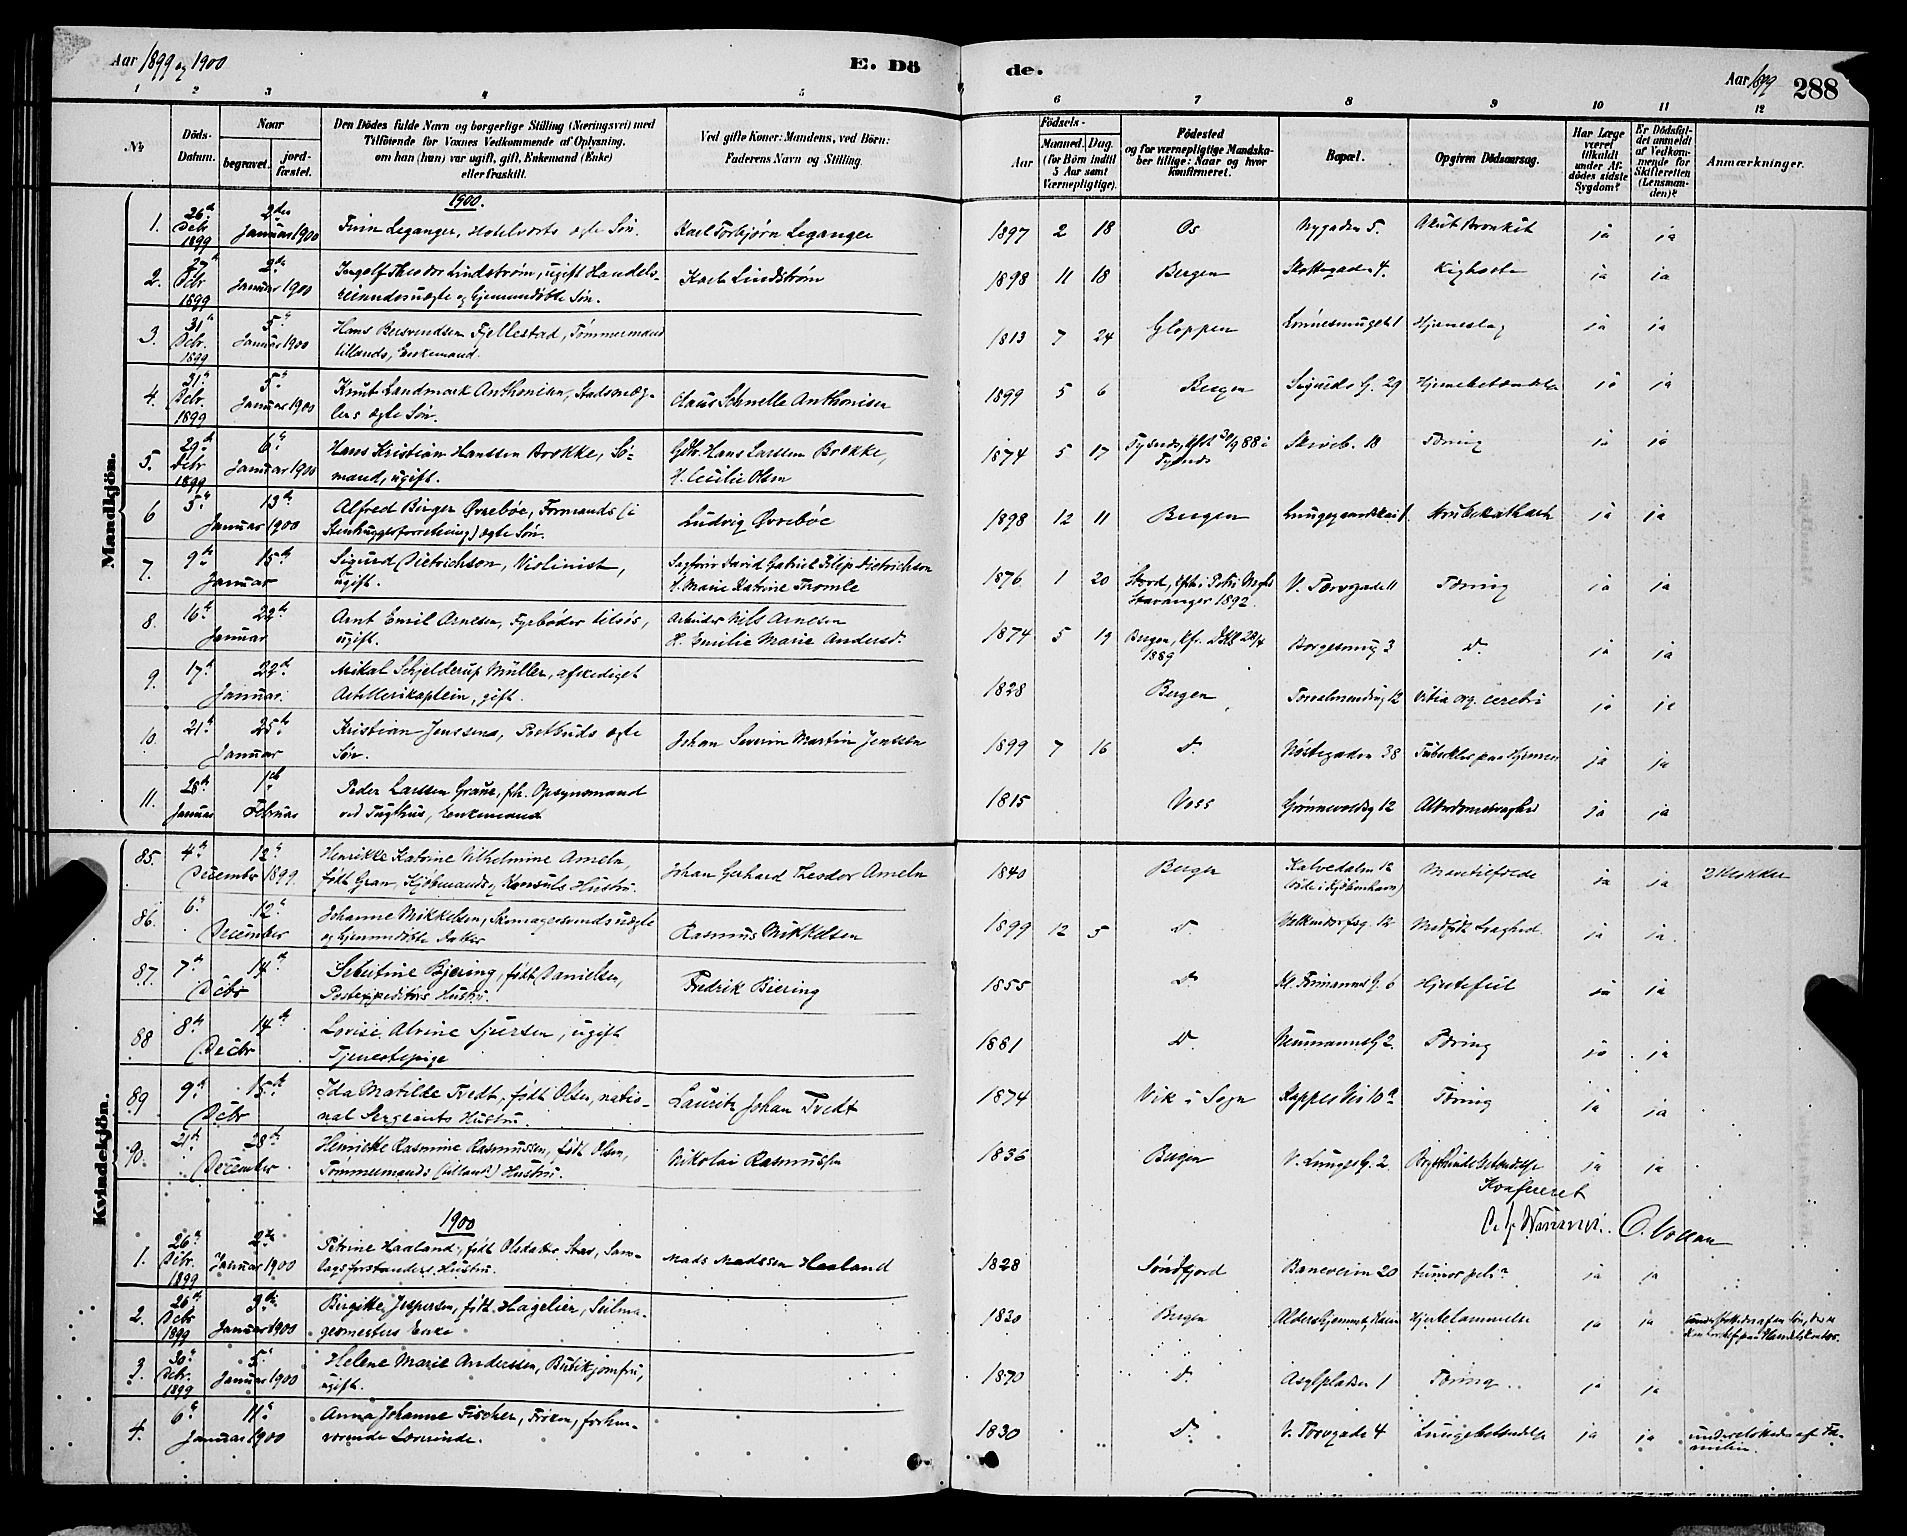 Aar 1899 og 1900
E. Dö
de.
Aar 1899
288
1 2 3 4 5 6 7 8 9 10 11 12
№
Döds-Datum.
Naar
begravet.
jordfæstet.
Den Dödes fulde Navn og borgerlige Stilling (Næringsvei) med
Tilföiende for Voxnes Vedkommende af Oplysning,
om han (hun) var ugift, gift, Enkemand (Enke)
eller fraskilt.
Ved gifte Koner: Mandens, ved Börn:
Faderens Navn og Stilling.
Födsels-
Aar
Maaned. Dag.
(for Börn indtil
5 Aar samt
Værnepligtige).
Födested
og for værnepligtige Mandskaber tillige: Naar og hvor
konfirmeret.
Bopæl.
Opgiven Dödsaarsag.
Har Læge
været
tilkaldt
under Afdödes sidste
Sygdom?
Er Dödsfaldet anmeldt
af Vedkommende for
Skifteretten
(Lensmanden)?
Anmærkninger.
Mandkjön.
1900.
1. 26de Debr 1899 2den Januar 1900 Finn Leganger, Hotelverts ægte Søn. Karl Torbjørn Leganger 1897 2 18 Os Nygaden 5. Akut Bronkit ja ja
2. 27de Debr 1899 2den Januar 1900 Ingolf Theodor Lindstrøm, ugift Handels-
og hjemmedøbte Søn. Karl Lindstrøm 1898 11 18 Bergen Skottegaden 4. Kighoste ja ja
3. 31te Debr. 1899 5te Januar 1900 Hans Bersvendsen Fjellestad, Tømmermand
tillands, Enkemand. 1813 7 24 Gloppen Hjerneslag ja ja
4. 31te Debr. 1899 5te Januar 1900 Knut Landmark Anthonisen, Stadsmæg-
lers ægte Søn. Claus Schnelle Anthonisen 1899 5 6 Bergen Sigurds G. 29 Hjernebetændelse ja ja
5. 29de Debr 1899 6te Januar 1900 Hans Kristian Hanssen Brekke, Sø-
mand, ugift. Gbr. Hans Larssen Brekke,
H. Cecilie Olsen 1874 5 17 Tysnes, kft 30/9 88 i
Tysnes Skiveb. 18 Tæring ja ja
6 5te 13de Januar 1900 Alfred Birger Øvrebøe, Formands (i
Stenhuggerforretning) ægte Søn. Ludvig Øvrebøe 1898 12 11 Bergen Lungegaardskai 1. ja ja
7. 9de 15de Januar Sigurd Dietrichson, Violinist,
ugift. Sagfører David Gabriel Filip Dietrichson
H. Marie Katrine Tromle 1876 1 20 Stord, kft i Petri Mgh
Stavanger 1892. V. Torvgade 11 Tæring ja ja
8. 16de 22de Januar Arnt Emil Arnesen, Fyrbøder tilsøs,
ugift. Arbeider Nils Arnesen
H. Emilie Marie Andersd. 1874 5 19 Bergen, kf. DK 28/4
1889 Borgesmug 3 Do ja ja
9. 17de 22de Januar. Mikal Schjelderup Müller, afskediget
Artillerikaptein, gift. 1828 Bergen Torvalmending 12 Vitia org. cerebri ja ja
10. 21de 25de Januar Kristian Jenssen, Postbuds ægte
Søn. Johan Severin Martin Jenssen 1899 7 16 Do Nøstegaden 38 Tuberkler paa Hjernen ja ja
11. 28de Januar 1ste Februar Peder Larssen Graue, fhv. Opsynsmand
ved Tugthus, Enkemand 1815 Voss Grønnevoldsg 12 Alderdomssvaghed ja ja
Kvindekjön.
85. 4de 12te December 1899. Henrikke Katrine Vilhelmine Ameln
født Gran, Kjøbmands og Konsuls Hustru. Johan Gerhard Theodor Ameln 1840 Bergen Kalvedalen 12
(døde i Kjøbenhavn) Mavetilfælde ja ja 2 Klokker
86. 6te 12te December Johanne Mikkelsen, Skomagersvends uægte
og hjemmedøbte Datter Rasmus Mikkelsen 1899 12 5 Do Medfødt Svaghed. ja ja.
87. 7de 14de Debr Severine Bjering, født Danielsen,
Postexpeditørs Hustru. Fredrik Biering 1855 Do Kl. Formanns G. 6 Hjertefeil ja ja
88 8de 14de Decbr Lovise Alvine Sjursen, ugift
Tjenestepige 1881 Do Neumanns G 2. Tæring ja ja
89 9de 15de Debr Ida Matilde Tvedt, født Olsen, natio-
nal Sergeants Hustru. Lauritz Johan Tvedt 1874 Vik i Sogn Kappes Vei 10a Tæring ja ja
90. 21de 28de December Henrikke Rasmine Rasmussen, født Olsen,
Tømmermands (tillands) Hustru. Nikolai Rasmussen 1836 Bergen V. Lunges G. 2. Brysthindebetændelse ja ja
Konfereret
O. Vollan
1900
1. 26de Debr. 1899 2den Januar 1900 Petrine Haaland, født Olsdatter Stav, Sam-
lagsforstanders Hustru. Mads Madssen Haaland 1828 Søndfjord Baneveien 20 tumor pelv. ja ja
2. 26de Debr 1899 3de Januar 1900 Birgitte Jespersen, født Hagelien, Seilma-
germesters Enke 1820 Bergen Alders Hjemmet, Hjertelammelse ja ja
3. 30te Debr. 1899 5te Januar 1900 Helene Marie Anderssen, Butikjomfru,
ugift. 1870 Do Asylpladsen 1 Tæring ja ja
4. 6te 11te Januar 1900 Anna Johanne Fischer, Frøken, forhen-
værende Lærerinde. 1830 Do V. Torvgade 4 Lungebetændelse ja ja understøttedes af Fa-
milien.